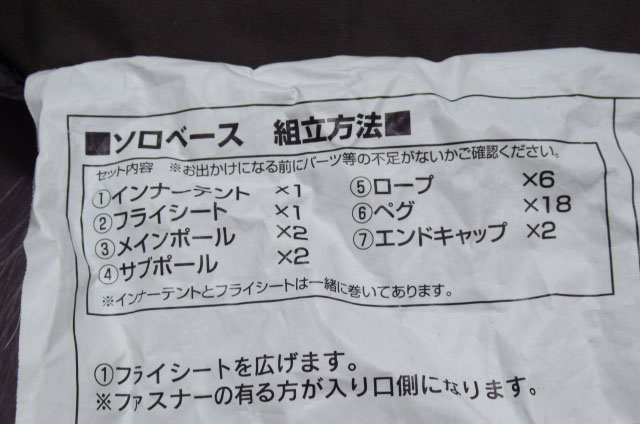 ■ソロベース 組立方法■
セット内容 ※お出かけになる前にパーツ等の不足がないかご確認ください。
①インナーテント ×1
②フライシート ×1
③メインポール ×2
④サブポール ×2
⑤ロープ ×6
⑥ペグ ×18
⑦エンドキャップ ×2
※インナーテントとフライシートは一緒に巻いてあります。
①フライシートを広げます。
※ファスナーの有る方が入り口側になります。